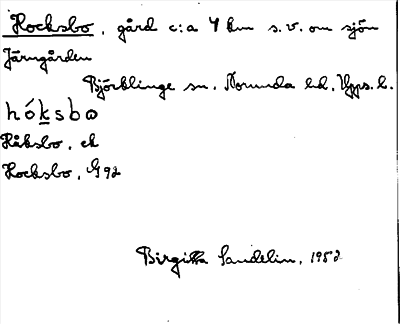 Hocksbo, gård c:a 4 km s.v. om sjön
Järngården
Björklinge sn. Norunda hd, Upps. l.
hóksbo
Håksbo, ek
Hocksbo, G 92
Birgitta Sandelin, 1952